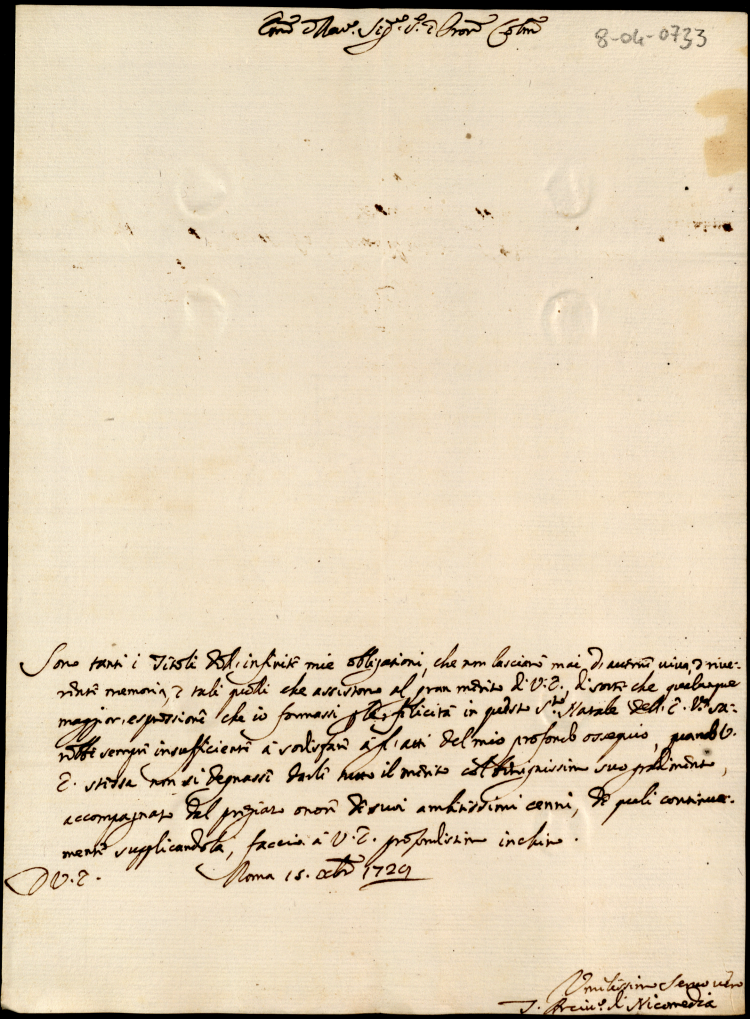 Em͞o e Rev.º Sig.r S.r e Pron͞e Col͞mo
8-04-0733
Sono tanti i Titoli dell'infinite mie obligazioni, che non lasciono mai d'averne viva, e rive-
rente memoria, e tali quelli che assistono al gran merito di V. E., di sorte che qualunque
maggior espressione che io formassi felicità in questo S.to Natale dell' E. V.ra sa-
rebbe sempre insufficiente à sodisfare à gl'atti del mio profondo ossequio, quando V.
E. stessa non si degnasse darli tutto il merito col benignissimo suo gradimento,
accompagnato dal pregiato onore de suoi ambitissimi cenni, de quali continua-
mente supplicandola, faccio à V. E. profondissimo inchino.
D V. E. Roma 15. xbre 1729
Umilissimo Servo vero
Arciv.º di Nicomedia